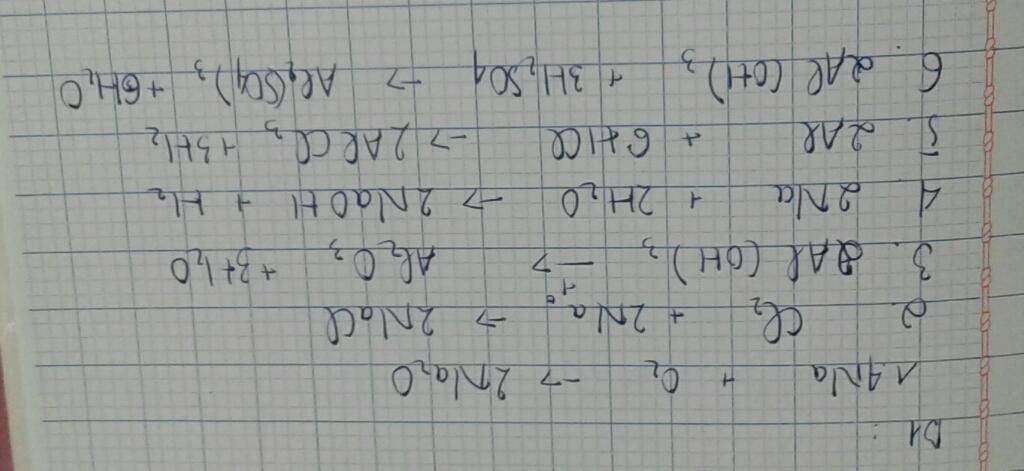 D1 :
1 4Na + O₂ → 2Na₂O
2. Cl₂ + 2Na → 2NaCl
3. 2Al(OH)₃ → Al₂O₃ + 3H₂O
4 2Na + 2H₂O → 2NaOH + H₂
5. 2Al + 6HCl → 2AlCl₃ + 3H₂
6. 2Al(OH)₃ + 3H₂SO₄ → Al₂(SO₄)₃ + 6H₂O